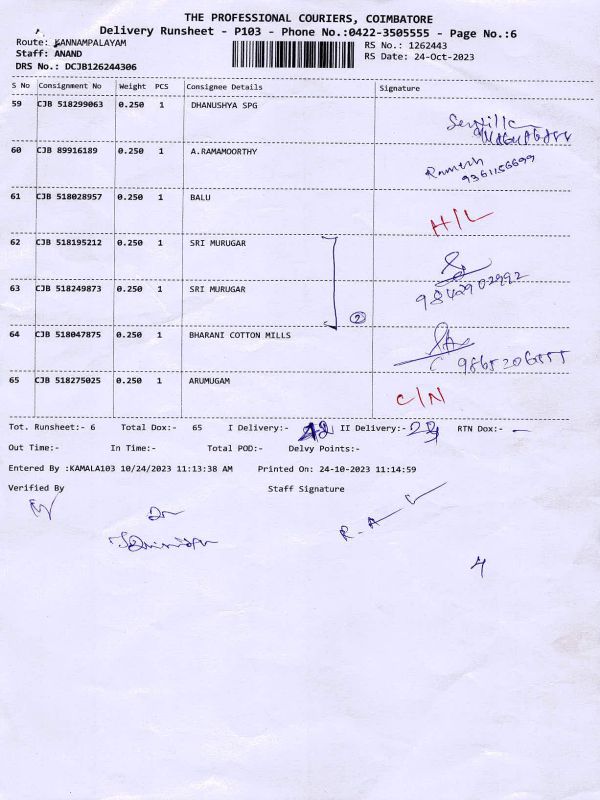 THE PROFESSIONAL COURIERS, COIMBATORE
Delivery Runsheet - P103 - Phone No.:0422-3505555 - Page No.:6
Route: KANNAMPALAYAM RS No.: 1262443
Staff: ANAND RS Date: 24-Oct-2023
DRS No.: DCJB126244306
S No Consignment No Weight PCS Consignee Details Signature
59 CJB 518299063 0.250 1 DHANUSHYA SPG
60 CJB 89916189 0.250 1 A.RAMAMOORTHY Ramesh
9361156699
61 CJB 518028957 0.250 1 BALU H/L
62 CJB 518195212 0.250 1 SRI MURUGAR
63 CJB 518249873 0.250 1 SRI MURUGAR 2 9842902992
64 CJB 518047875 0.250 1 BHARANI COTTON MILLS
65 CJB 518275025 0.250 1 ARUMUGAM C/N
Tot. Runsheet:- 6 Total Dox:- 65 I Delivery:- 42 II Delivery:- 23 RTN Dox:- -
Out Time:- In Time:- Total POD:- Delvy Points:-
Entered By :KAMALA103 10/24/2023 11:13:38 AM Printed On: 24-10-2023 11:14:59
Verified By Staff Signature
4